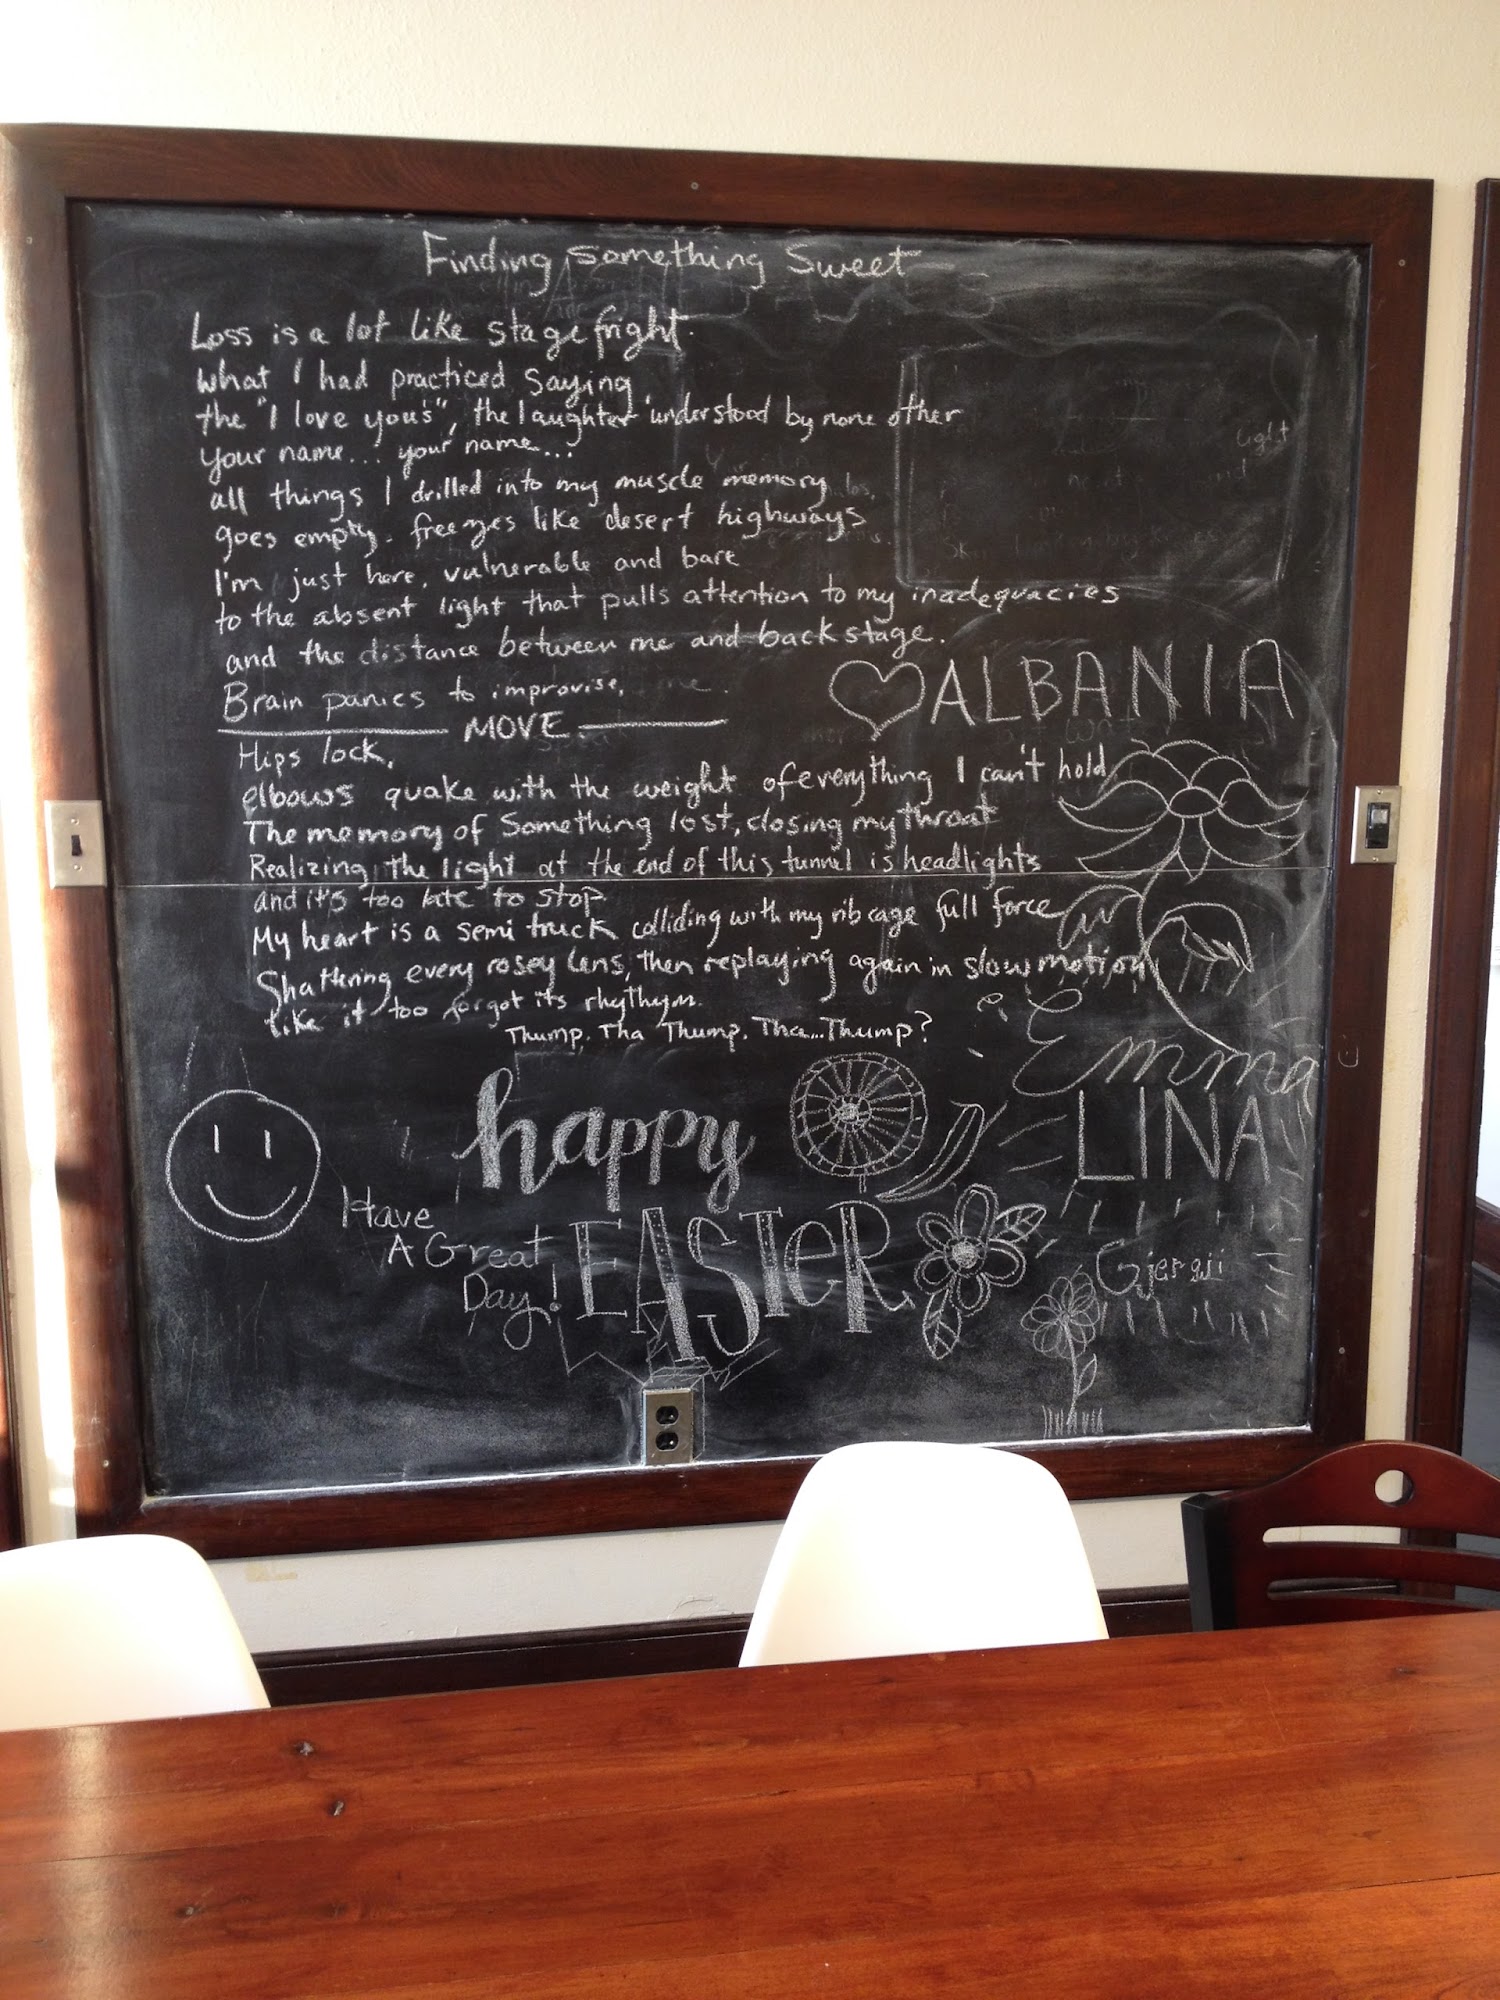 Finding Something Sweet
Loss is a lot like stage fright.
What I had practiced saying
the "I love you's", the laughter understood by none other
your name... your name...
all things I drilled into my muscle memory
goes empty. freezes like desert highways
I'm just here, vulnerable and bare
to the absent light that pulls attention to my inadequacies
and the distance between me and backstage.
Brain panics to improvise.
MOVE.
Hips lock,
elbows quake with the weight of everything I can't hold
The memory of something lost, closing my throat
Realizing the light at the end of this tunnel is headlights
and it's too late to stop
My heart is a semi truck colliding with my rib cage full force
Shattering every rosey lens, then replaying again in slow motion
like it too forgot its rhythym.
Thump, Tha Thump, Tha...Thump?
ALBANIA
light
Emma
LINA
happy
EASTER
Have
A Great
Day!
Gjergji